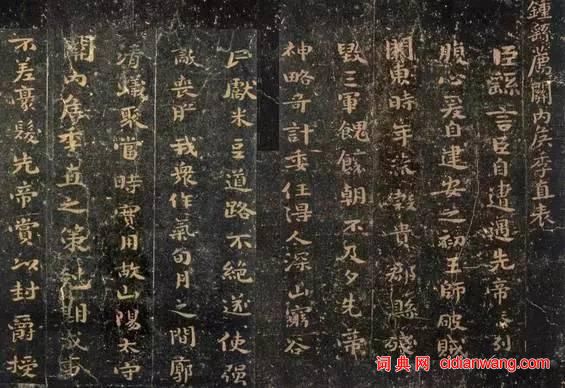 鍾繇薦關内侯季直表
臣繇言臣自遭遇先帝忝列
腹心爰自建安之初王師破賊
關東時年荒穀貴郡縣殘
毀三軍餽饟朝不及夕先帝
神略奇計委任得人深山窮谷
民獻米豆道路不絕遂使强
敵喪膽我衆作氣旬月之間廓
清蟻聚當時實用故山陽太守
關内侯季直之策剋期成事
不差豪髮先帝賞以封爵授
词典网 cidianwang.com